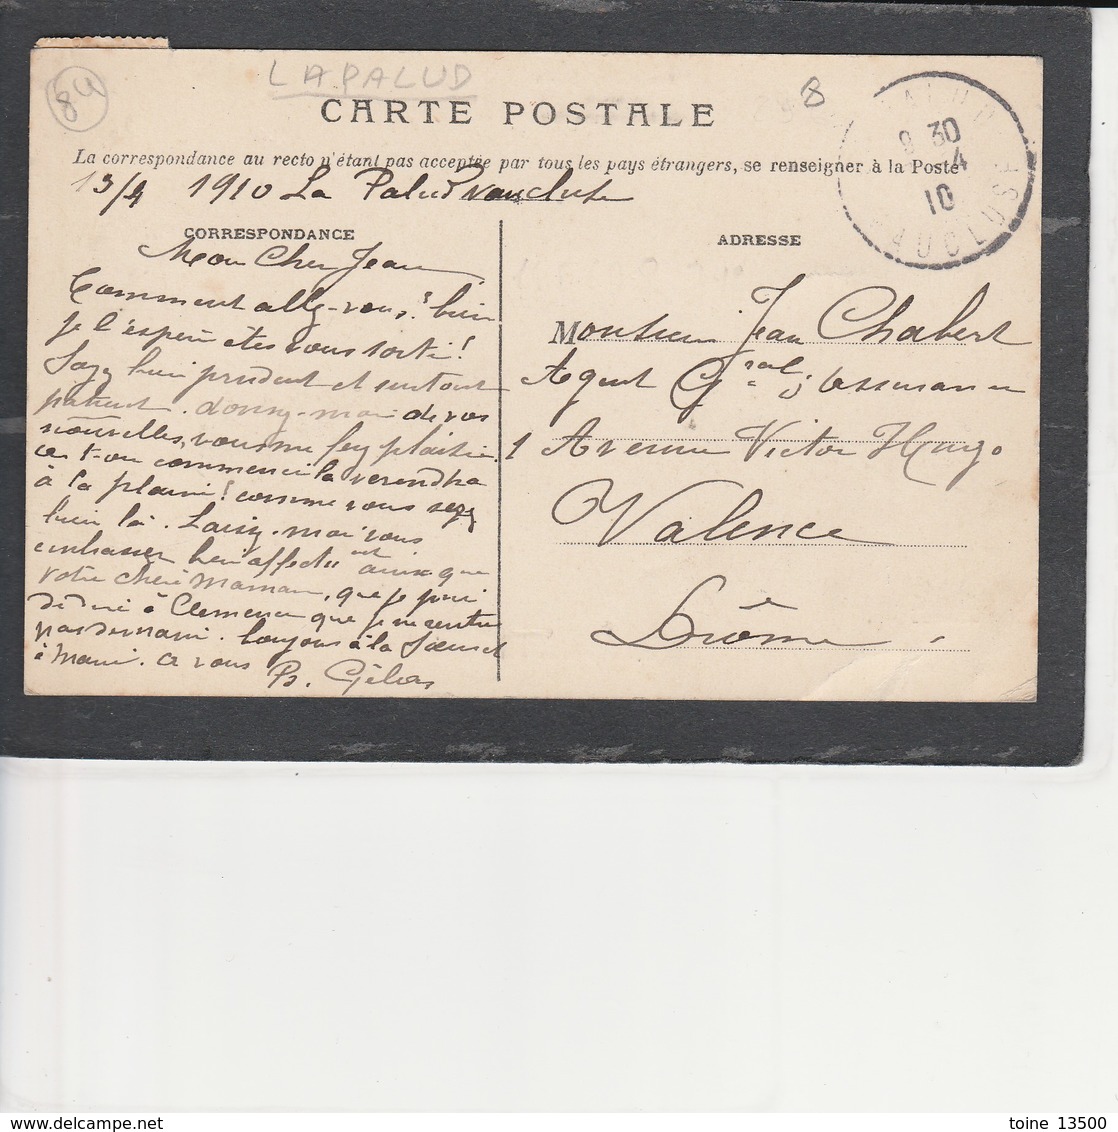 LAPALUD
84
8
CARTE POSTALE
La correspondance au recto n'étant pas acceptée par tous les pays étrangers, se renseigner à la Poste
13/4 1910 La Palud Vaucluse
PALUD
9 30
4
10
VAUCLUSE
CORRESPONDANCE
ADRESSE
Mon Cher Jean
Comment allez-vous? bien
je l'espère êtes vous sorti!
Soyez bien prudent et surtout
patient. donnez-moi de vos
nouvelles, vous me fez plaisir.
a-t-on commencé la
à la plaine! comme vous serez
bien là. Laissez-moi vous
embrasser bien affectu ent ainsi que
votre chère Maman, que je prie
de dire à Clemence que je ne rentre
pas demain. Toujours à la
à Marie. a vous
P. Gélas
Monsieur Jean Chabert
Agent Gral d'assurances
1 Avenue Victor Hugo
Valence
Drôme
toine 13500